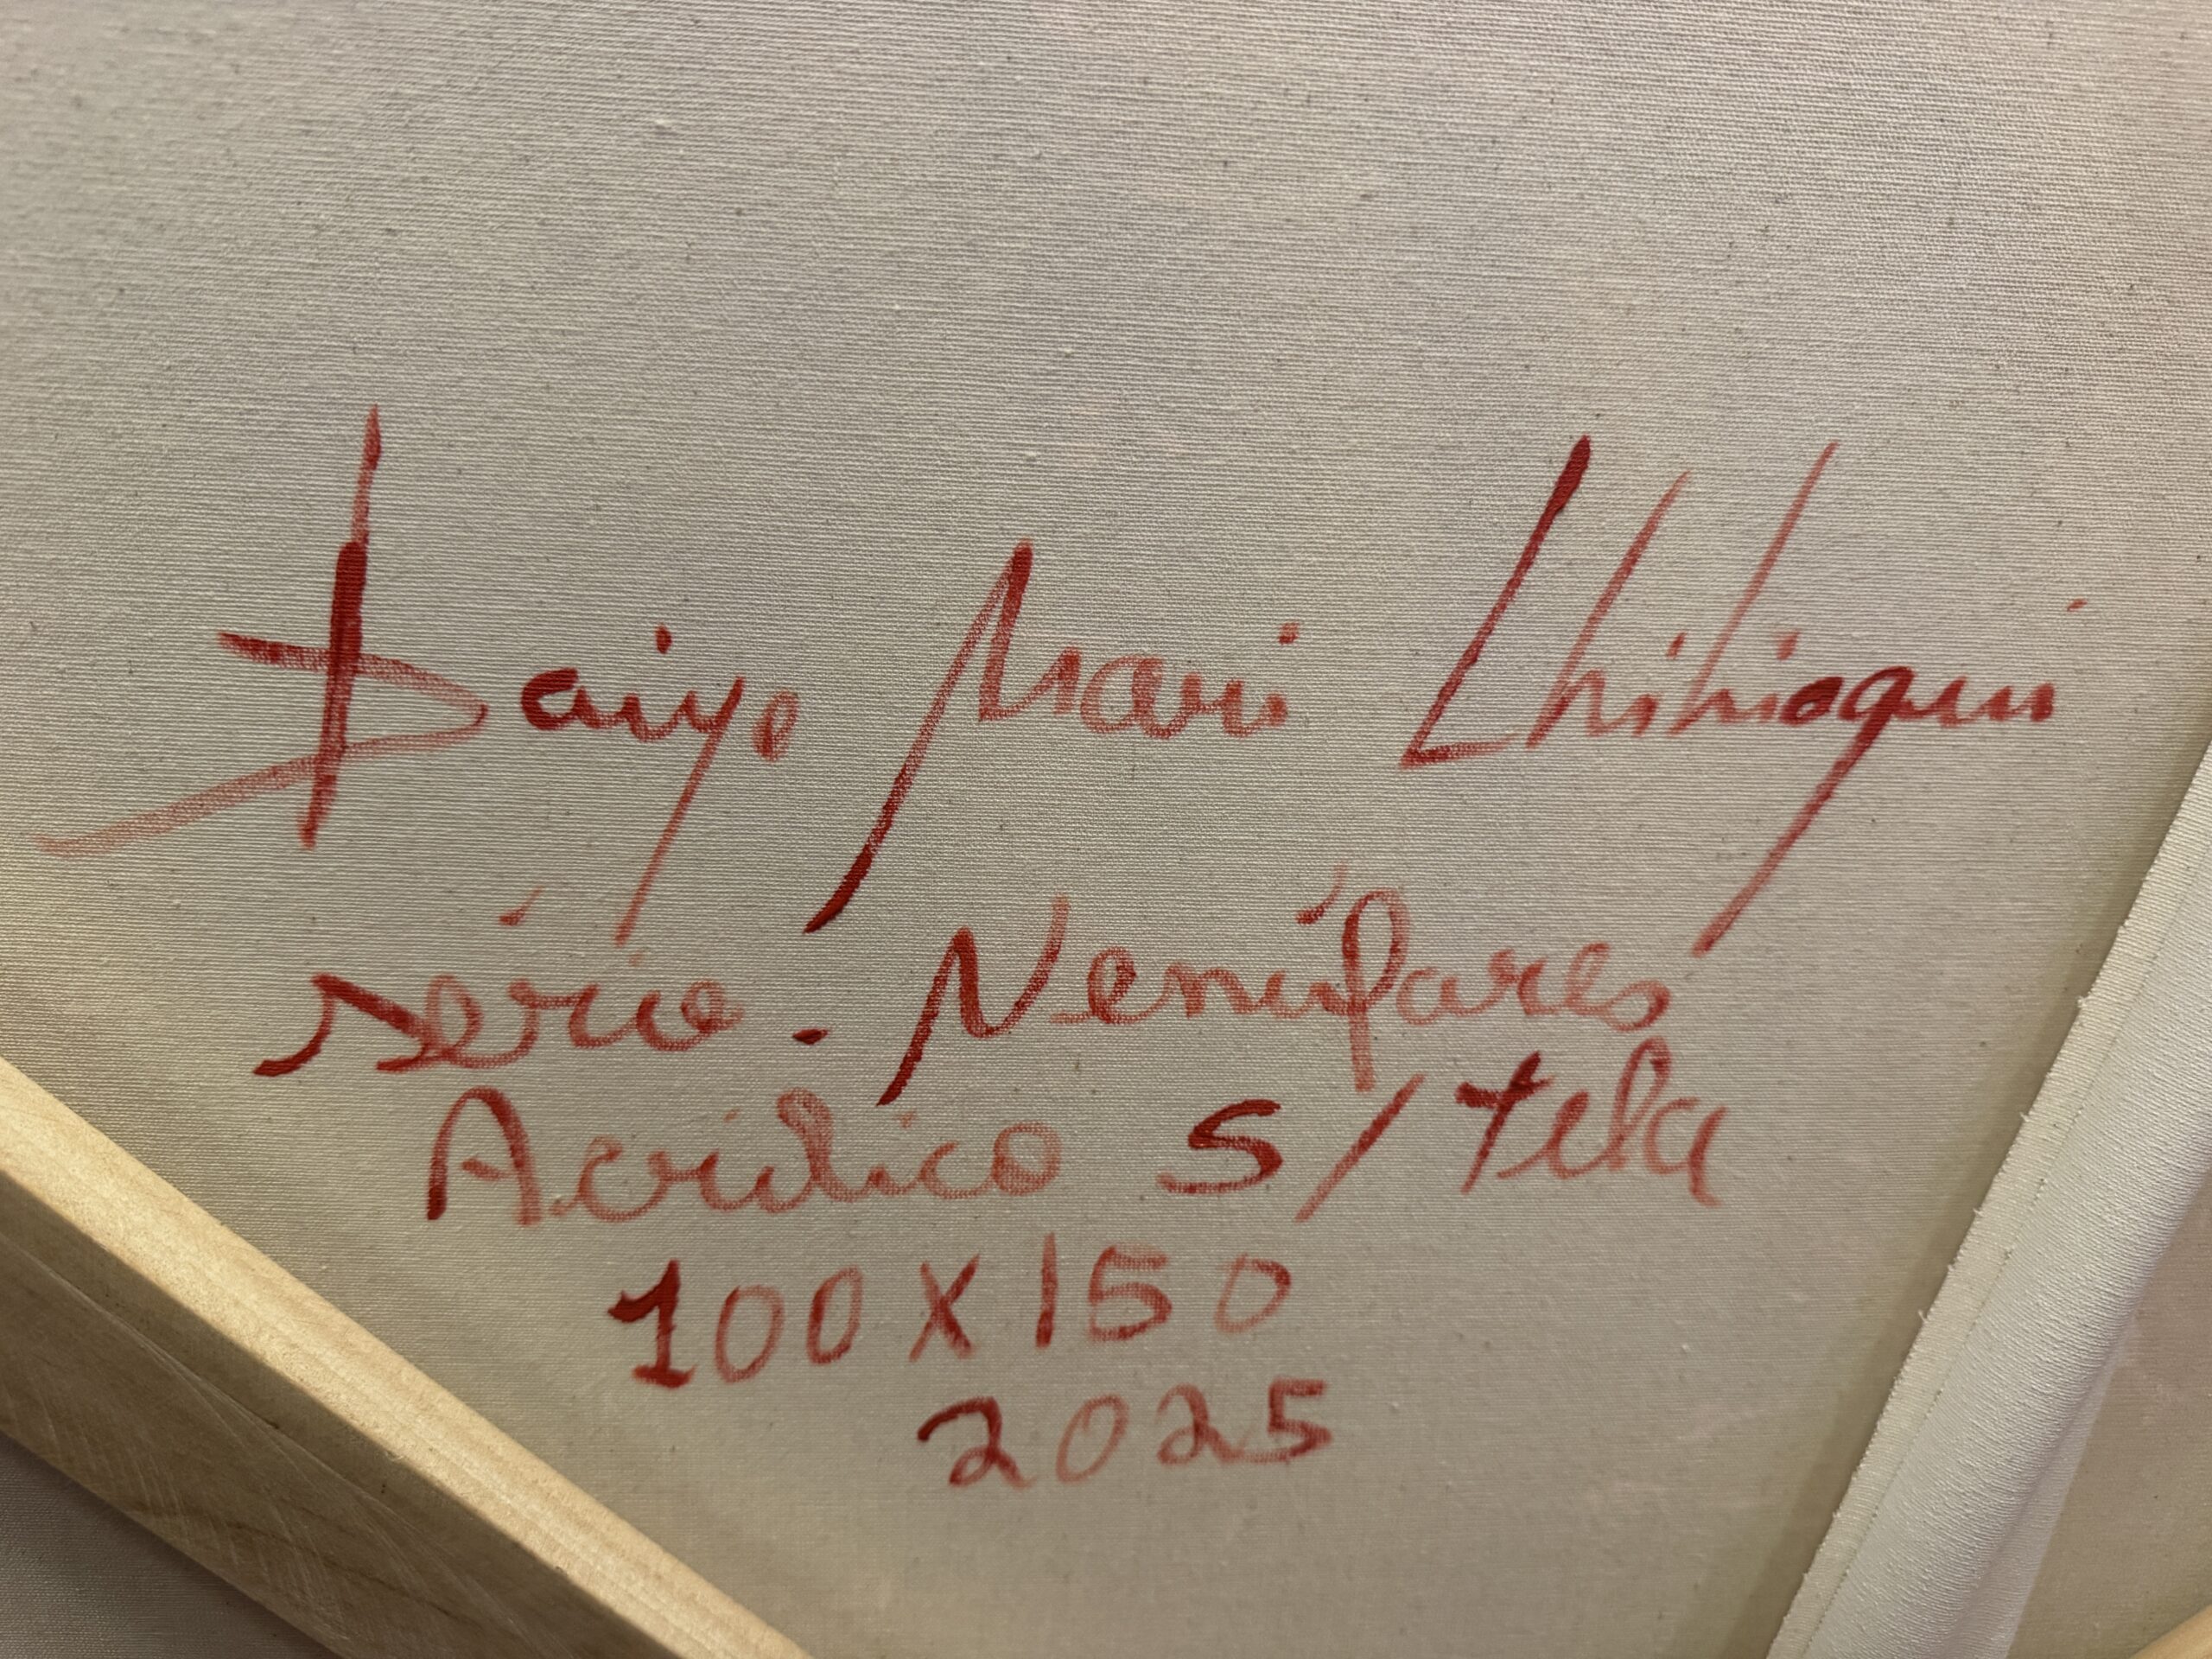 Daiye Mari Chihiaqui
série - Nenúfares
Acrílico S/tela
100 X 150
2025